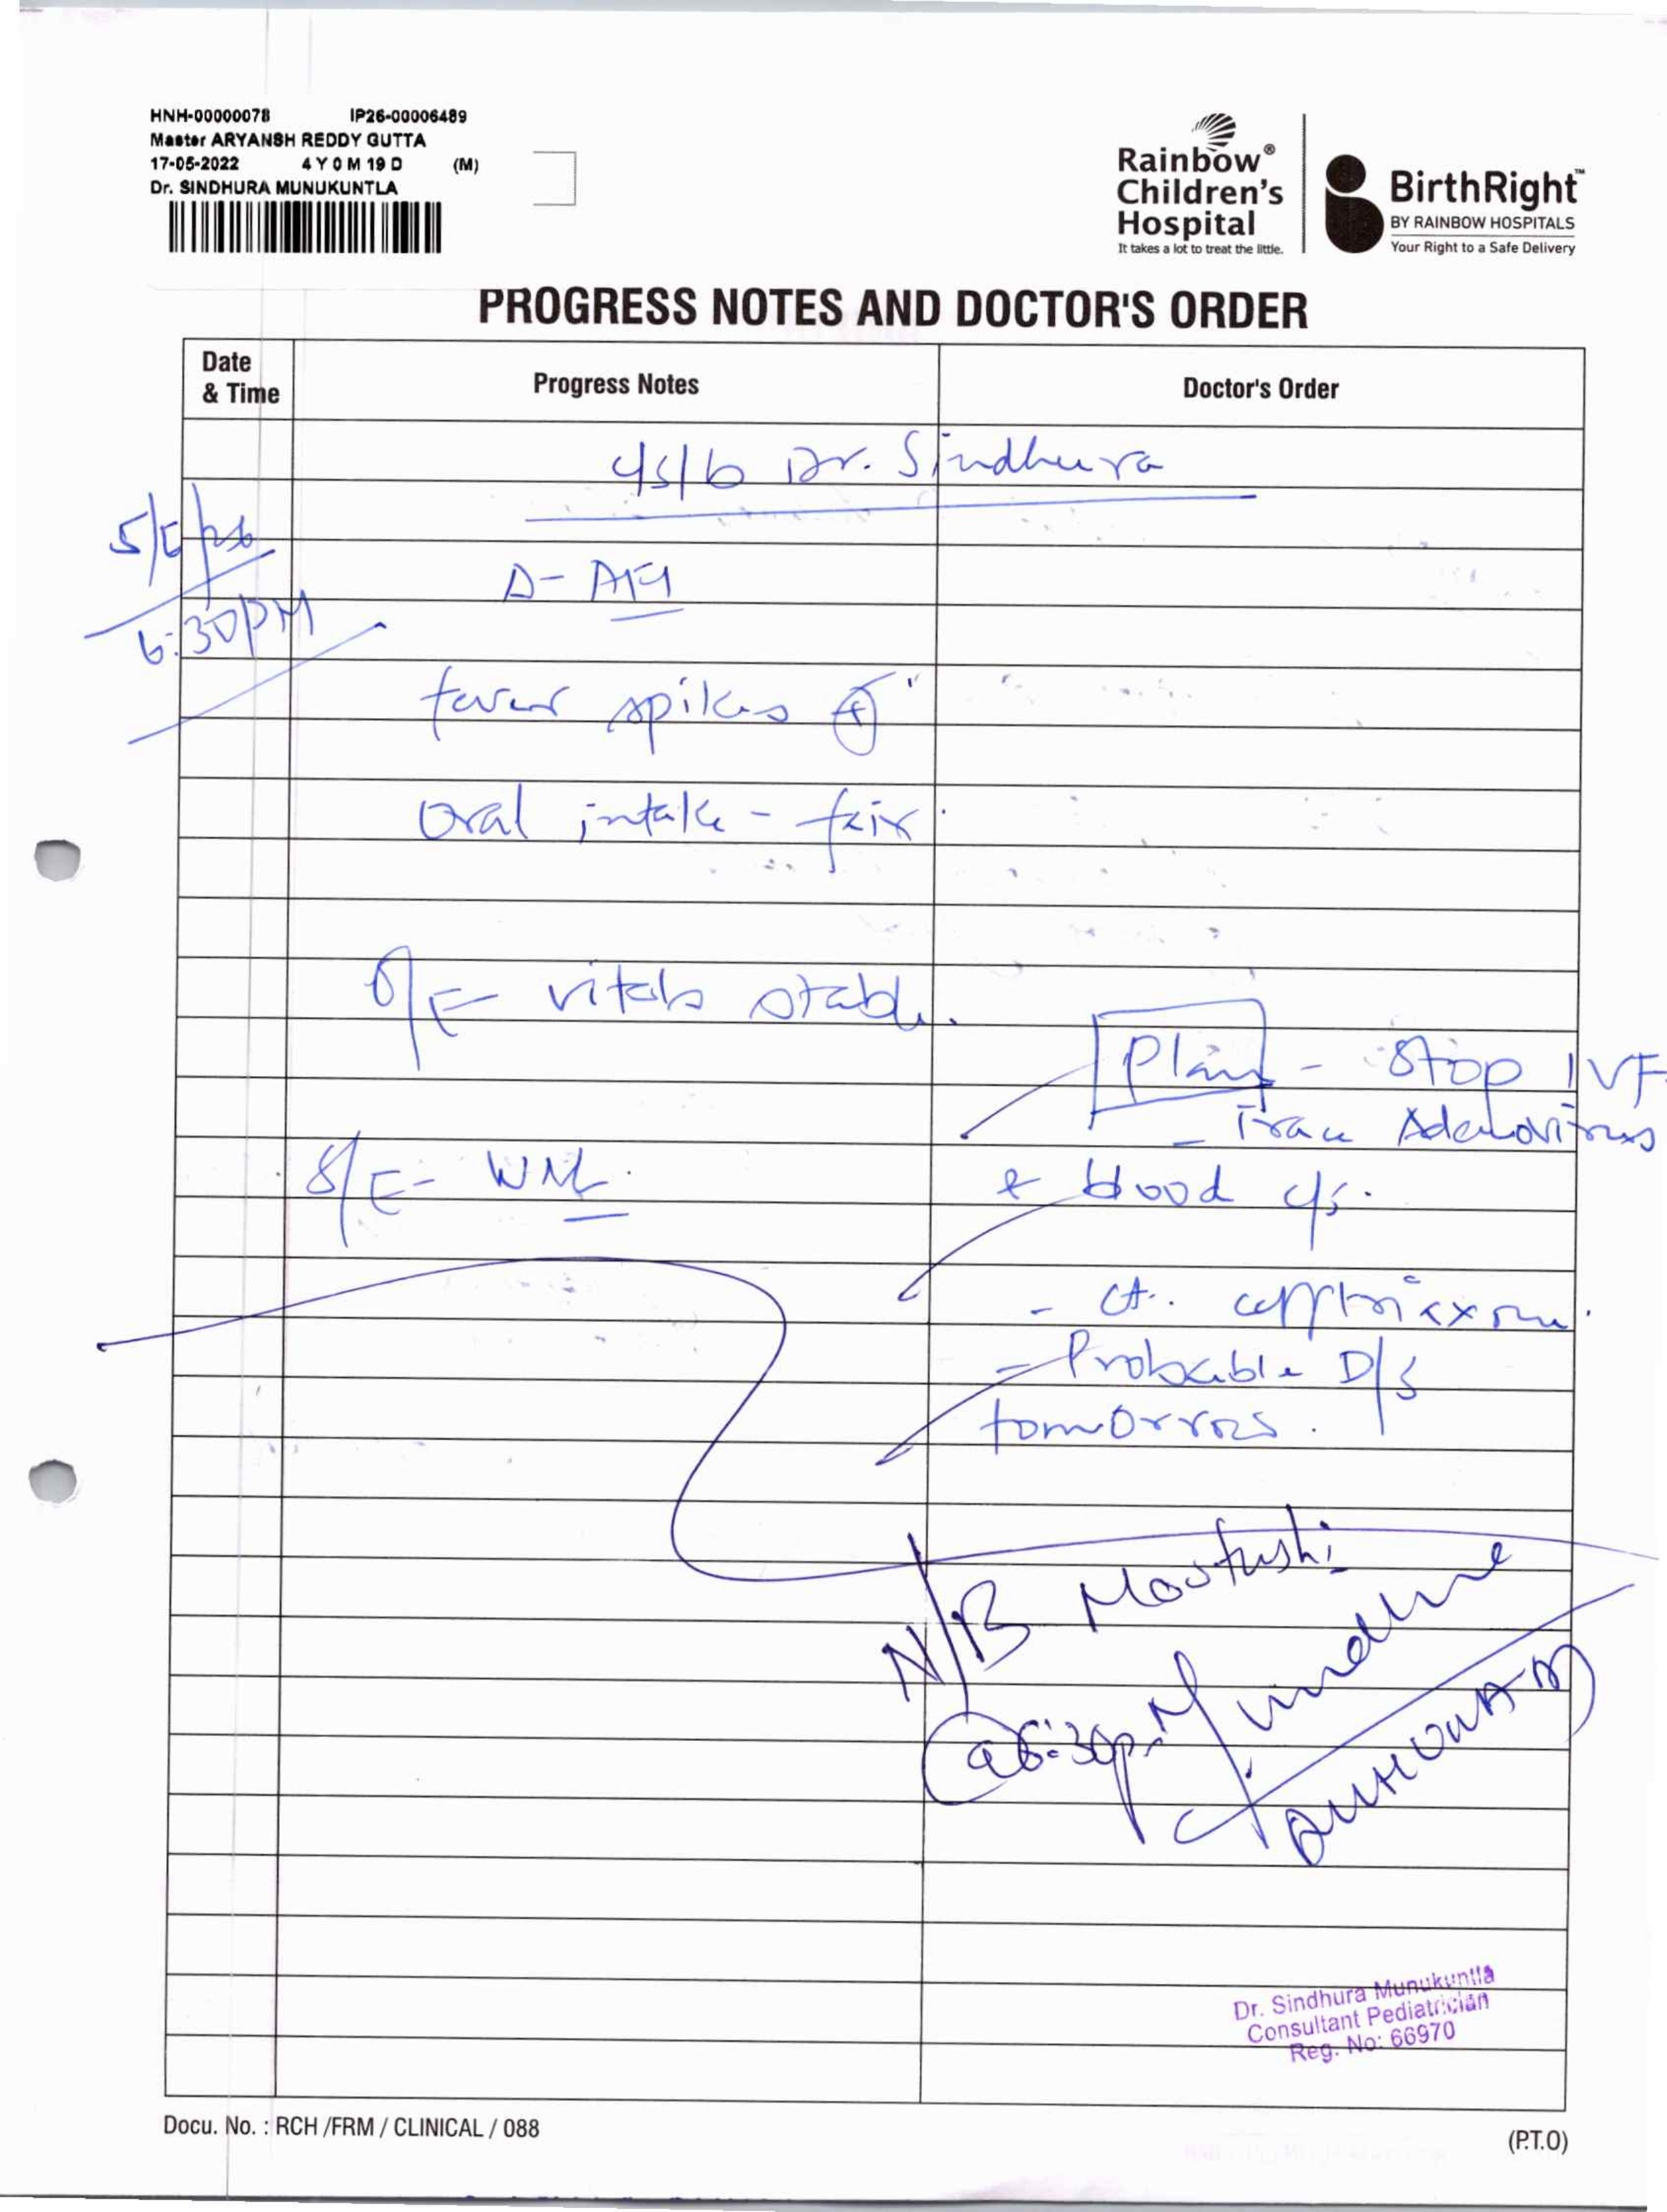 HNH-00000078 IP26-00006489
Master ARYANSH REDDY GUTTA
17-05-2022 4 Y 0 M 19 D (M)
Dr. SINDHURA MUNUKUNTLA
Rainbow®
Children's
Hospital
It takes a lot to treat the little.
BirthRight™
BY RAINBOW HOSPITALS
Your Right to a Safe Delivery
PROGRESS NOTES AND DOCTOR'S ORDER
Date
& Time
Progress Notes
Doctor's Order
Dr. Sindhura
6:30PM
Δ- AFI
fever spikes (+)
Oral intake - fair.
O/E- vitals stable.
Plan - Stop IVF
- Trace Adenovirus
S/E- WNL.
& blood c/s.
- Ct. ceftriaxone.
- Probable D/S
tomorrow.
N/B
@ 6:30pm
Dr. Sindhura Munukuntla
Consultant Pediatrician
Reg. No: 66970
Docu. No. : RCH /FRM / CLINICAL / 088
(P.T.O)